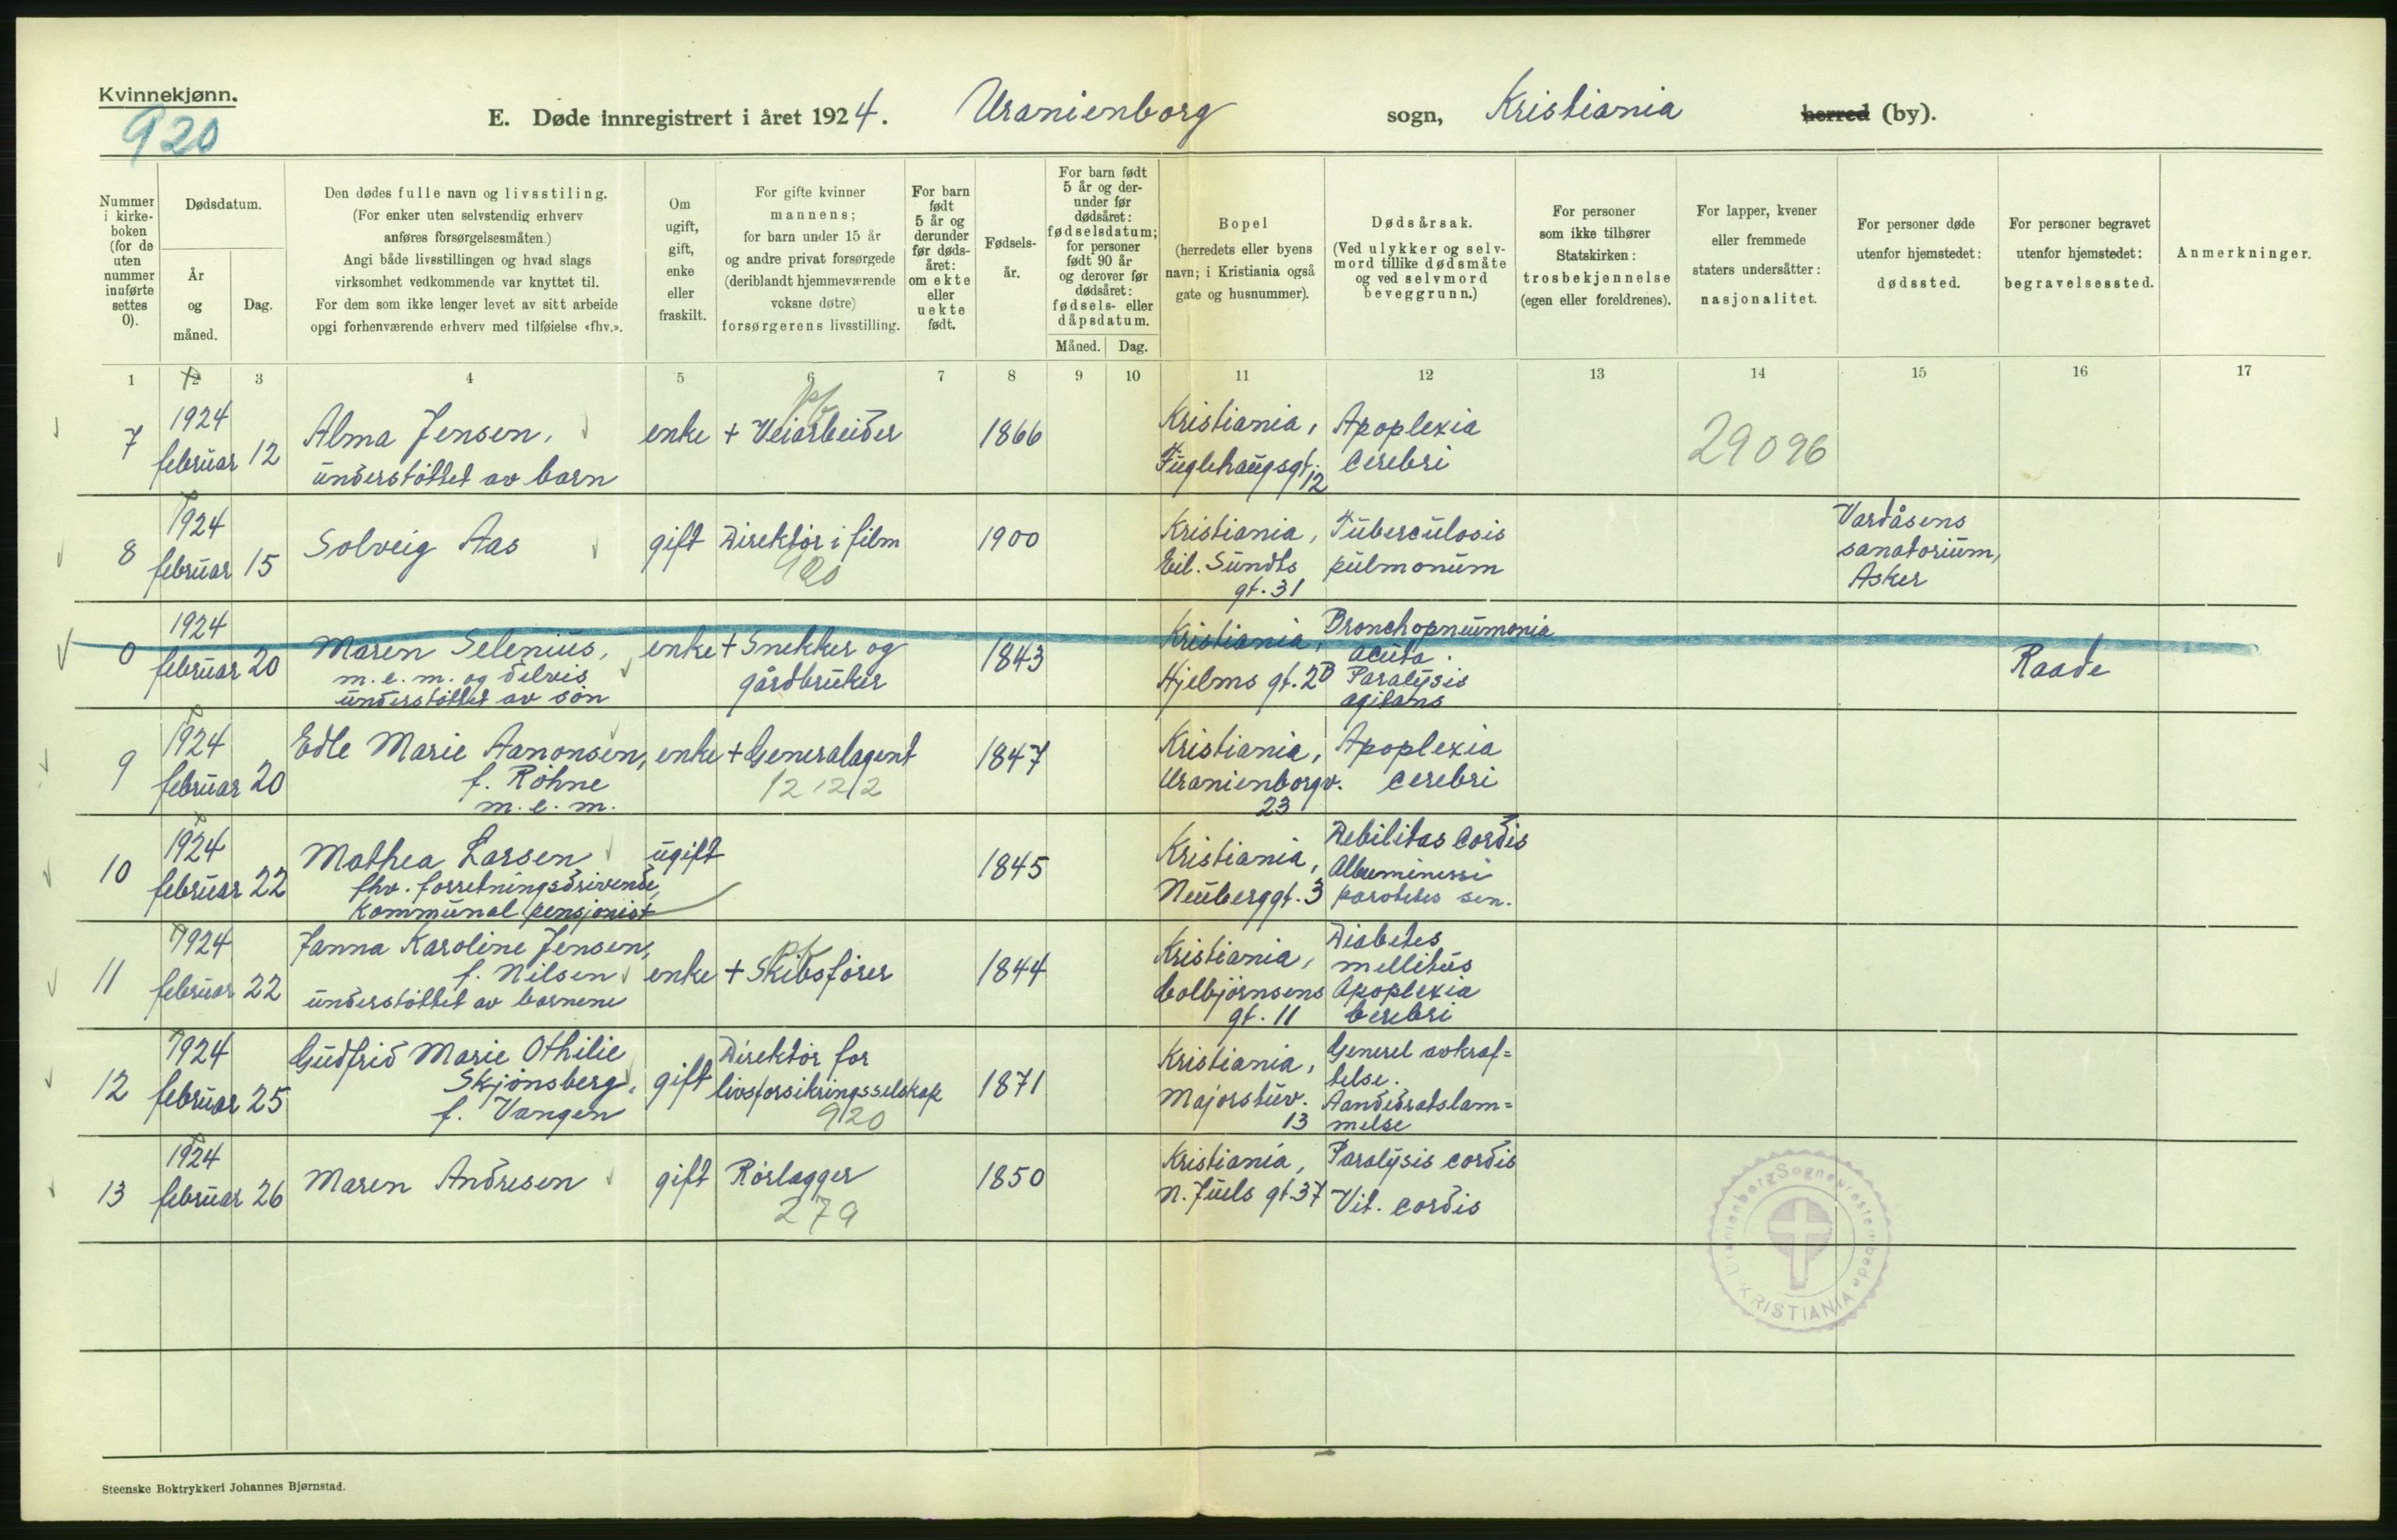 Kvinnekjønn.
920
E. Døde innregistrert i året 1924. Uranienborg sogn, Kristiania herred (by).
Nummer i kirke-boken (for de uten nummer innførte settes 0).
Dødsdatum.
År og måned.
Dag.
Den dødes fulle navn og livsstiling.
(For enker uten selvstendig erhverv
anføres forsørgelsesmåten.)
Angi både livsstillingen og hvad slags
virksomhet vedkommende var knyttet til.
For dem som ikke lenger levet av sitt arbeide
opgi forhenværende erhverv med tilføielse «fhv.».
Om
ugift,
gift,
enke
eller
fraskilt.
For gifte kvinner
mannens;
for barn under 15 år
og andre privat forsørgede
(deriblandt hjemmeværende
voksne døtre)
forsørgerens livsstilling.
For barn
født
5 år og
derunder
før døds-
året:
om ekte
eller
uekte
født.
Fødsels-
år.
For barn født
5 år og der-
under før
dødsåret:
fødselsdatum;
for personer
født 90 år
og derover før
dødsåret:
fødsels- eller
dåpsdatum.
Måned. Dag.
Bopel
(herredets eller byens
navn; i Kristiania også
gate og husnummer).
Dødsårsak.
(Ved ulykker og selv-
mord tillike dødsmåte
og ved selvmord
beveggrunn.)
For personer
som ikke tilhører
Statskirken:
trosbekjennelse
(egen eller foreldrenes).
For lapper, kvener
eller fremmede
staters undersåtter:
nasjonalitet.
For personer døde
utenfor hjemstedet:
dødssted.
For personer begravet
utenfor hjemstedet:
begravelsessted.
Anmerkninger.
1 2 3 4 5 6 7 8 9 10 11 12 13 14 15 16 17
7 1924 februar 12
Alma Jensen,
understøttet av barn
enke + Veiarbeider
1866
Kristiania,
Fuglehaugsgt. 12
Apoplexia
Cerebri
29096
8 1924 februar 15
Solveig Aas
gift Direktør i film
920
1900
Kristiania,
Eil. Sundts
gt. 31
Tuberculosis
pulmonum
Vardåsens
sanatorium,
Asker
0 1924 februar 20
Maren Selenius,
m. e. m. og delvis
understøttet av søn
enke + Snekker og
gårdbruker
1843
Kristiania,
Hjelms gt. 2B
Bronchopneumonia
acuta.
Paralysis
agitans
Raade
9 1924 februar 20
Edle Marie Aanonsen,
f. Røhne
m. e. m.
enke + Generalagent
1847
Kristiania,
Uranienborgv.
23
Apoplexia
Cerebri
10 1924 februar 22
Mathea Larsen
fhv. forretningsdrivende,
Kommunal pensjonist
ugift
1845
Kristiania,
Neuberggt. 3
Debilitas Cordis
sen.
11 1924 februar 22
Janna Karoline Jensen,
f. Nilsen
understøttet av barnene
enke + Skibsfører
1844
Kristiania,
Colbjørnsens
gt. 11
Diabetes
mellitus
Apoplexia
Cerebri
12 1924 februar 25
Gudfrid Marie Othilie
Skjønsberg,
f. Vangen
gift Direktør for
livsforsikringsselskap
920
1871
Kristiania,
Majorstuv.
13
Generel avkraf=
telse.
Aandedrætslam=
melse
13 1924 februar 26
Maren Andresen
gift Rørlægger
279
1850
Kristiania,
N. Juels gt. 37
Paralysis cordis
Vit. cordis
Uranienborg Sogneprestembede
KRISTIANIA
Steenske Boktrykkeri Johannes Bjørnstad.